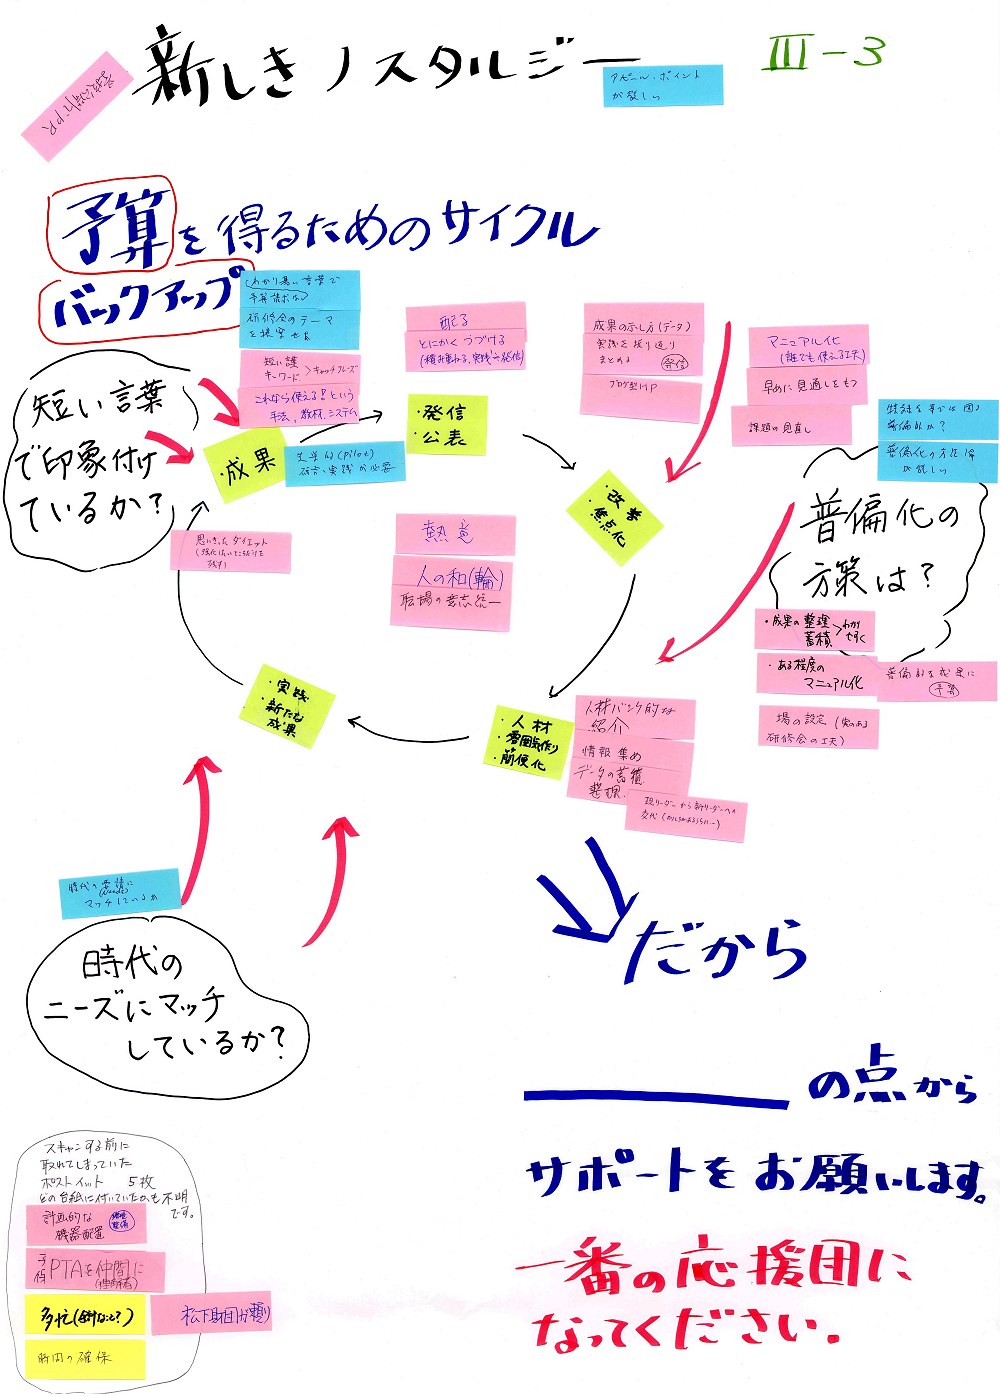 新しきノスタルジー
III-3
アピール・ポイント
が欲しい
予算を得るためのサイクル
バックアップ
わかり易い言葉で
予算請求を
研修会のテーマ
を提案せよ
短い言葉
で印象付け
ているか？
短い護
キーワード＞キャッチフレーズ
これなら使える！という
手法、教材、システム
・成果
(Pilot)
研究・実践が必要
配る
とにかくつづける
(積み重ねる、実践→発信)
・発信
・公表
成果の示し方(データ)
実践を振り返り
まとめる
ブログ型HP
マニュアル化
(誰でも使える工夫)
早めに見通しをもつ
課題の見直し
・改善
・焦点化
普偏化の方法論
が欲しい
普偏化の
方策は？
思いきったダイエット
熱意
人の和(輪)
職場の意志統一
・成果の整理
蓄積＞わかり
やすく
・ある程度の
マニュアル化
普偏的な成果に
予算
場の設定(実のある
研修会の工夫)
・実践
・新たな
成果
・人材
・雰囲気作り
・簡便化
人材バンク的な
紹介
情報集め
データの蓄積
整理
現リーダーから新リーダーへの
交代
時代の要請に
(needs)
マッチしているか
時代の
ニーズにマッチ
しているか？
だから
の点から
サポートをお願いします。
一番の応援団に
なってください。
スキャンする前に
取れてしまっていた
ポストイット 5枚
どの台紙に付いていたのも不明
です。
計画的な
機器配置
環境
整備
PTAを仲間に
多忙
松下財団が頼り
時間の確保